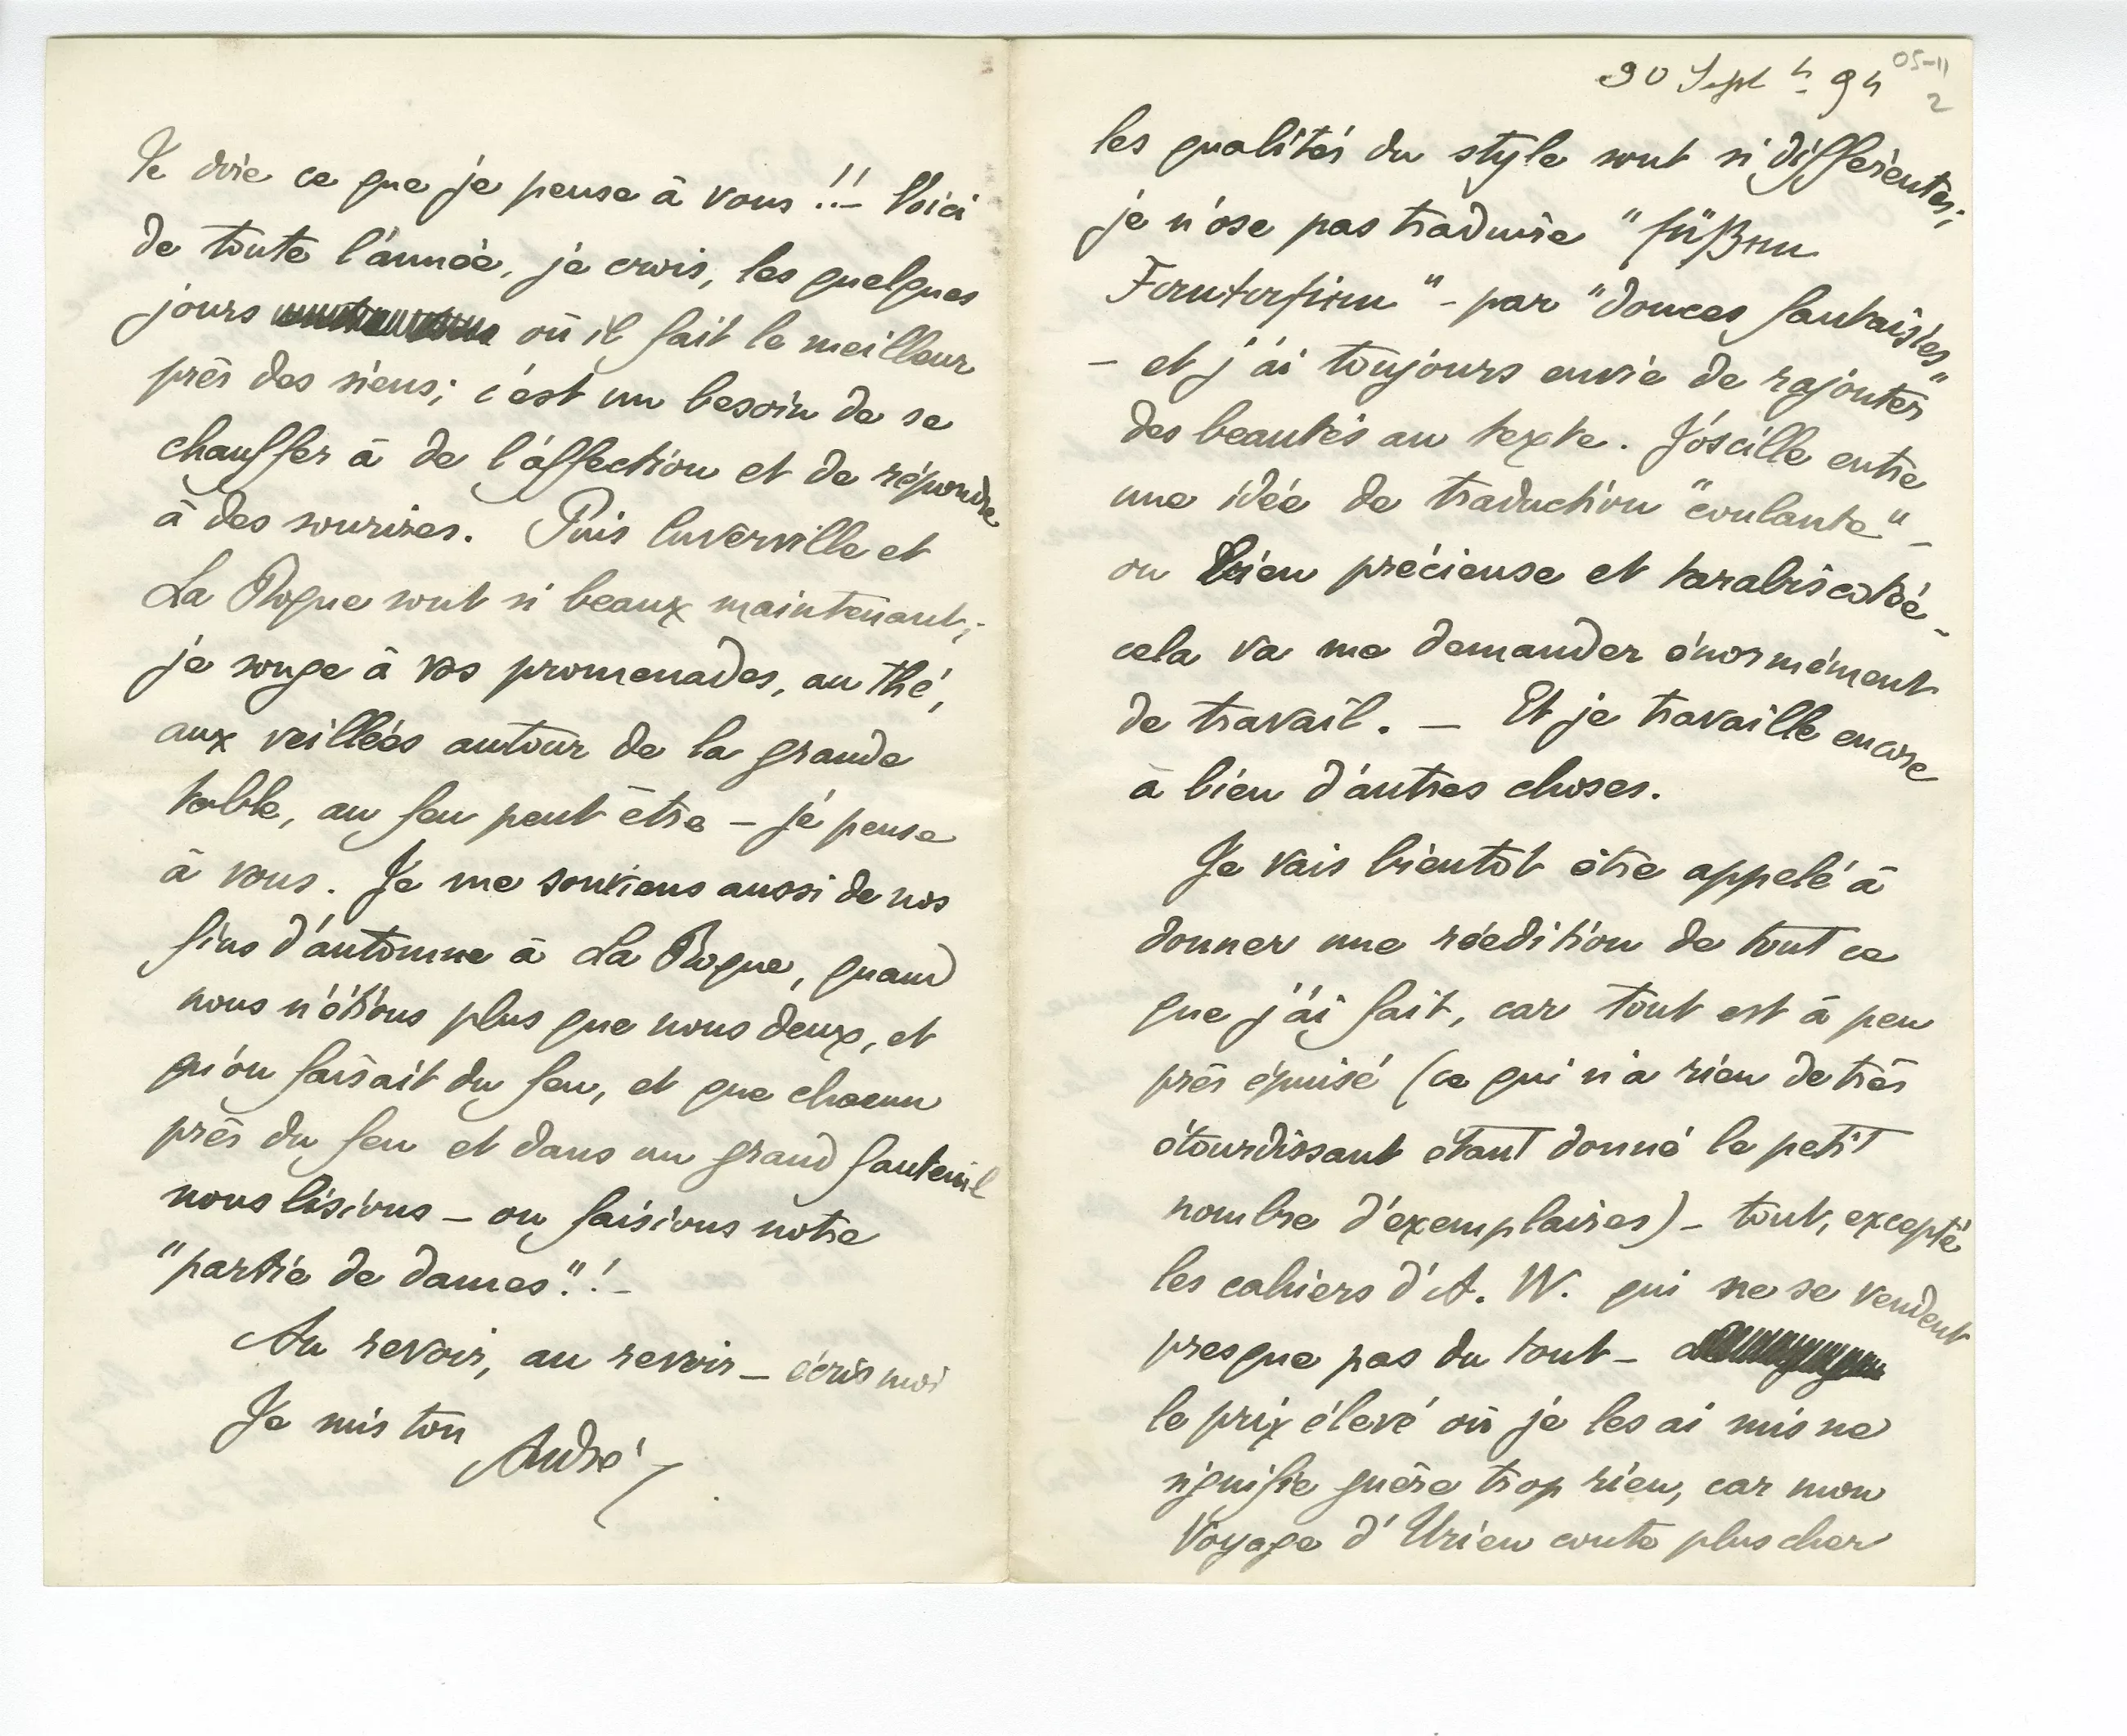 Te dire ce que je pense à vous !! – Voici
de toute l'année, je crois, les quelques
jours où il fait le meilleur
près des siens ; c'est un besoin de se
chauffer à de l'affection et de répondre
à des sourires. Puis Cuverville et
La Roque sont si beaux maintenant ;
je songe à vos promenades, au thé,
aux veillées autour de la grande
table, au feu peut être – je pense
à vous. Je me souviens aussi de nos
fins d'automne à La Roque, quand
nous n'étions plus que nous deux, et
qu'on faisait du feu, et que chacun
près du feu et dans un grand fauteuil
nous lisions – ou faisions notre
"partie de dames". ! –
Au revoir, au revoir – écris moi
Je suis ton
André
30 Sept 94
05-11
2
les qualités du style sont si différentes ;
je n'ose pas traduire "süßen
Fantasien" – par "douces fantaisies"
– et j'ai toujours envie de rajouter
des beautés au texte. J'oscille entre
une idée de traduction "coulante" –
ou bien précieuse et tarabiscotée –
cela va me demander énormément
de travail. – Et je travaille encore
à bien d'autres choses.
Je vais bientôt être appelé à
donner une réédition de tout ce
que j'ai fait, car tout est à peu
près épuisé (ce qui n'a rien de très
étourdissant étant donné le petit
nombre d'exemplaires) – tout, excepté
les cahiers d'A. W. qui ne se vendent
presque pas du tout –
le prix élevé où je les ai mis ne
signifie guère trop rien, car mon
Voyage d'Urien coute plus cher